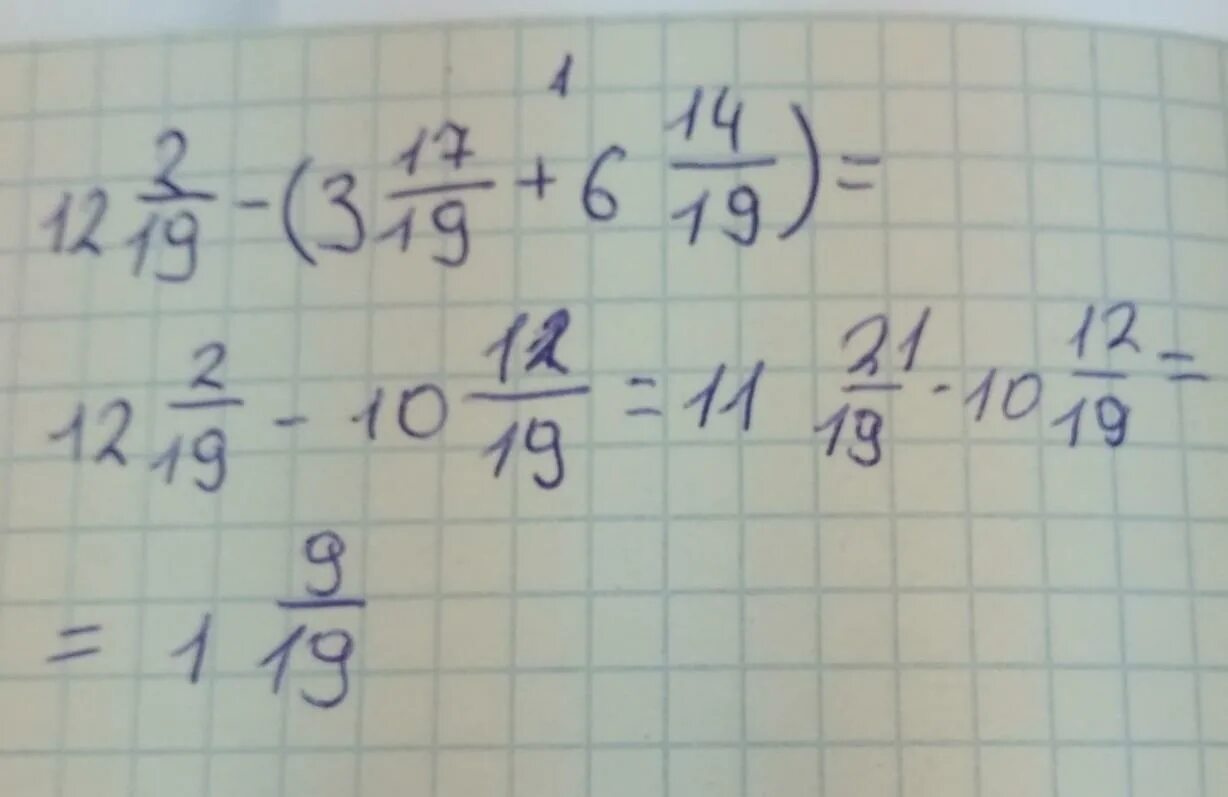 1
12 2/19 - (3 17/19 + 6 14/19) =
12 2/19 - 10 12/19 = 11 21/19 - 10 12/19 =
= 1 9/19